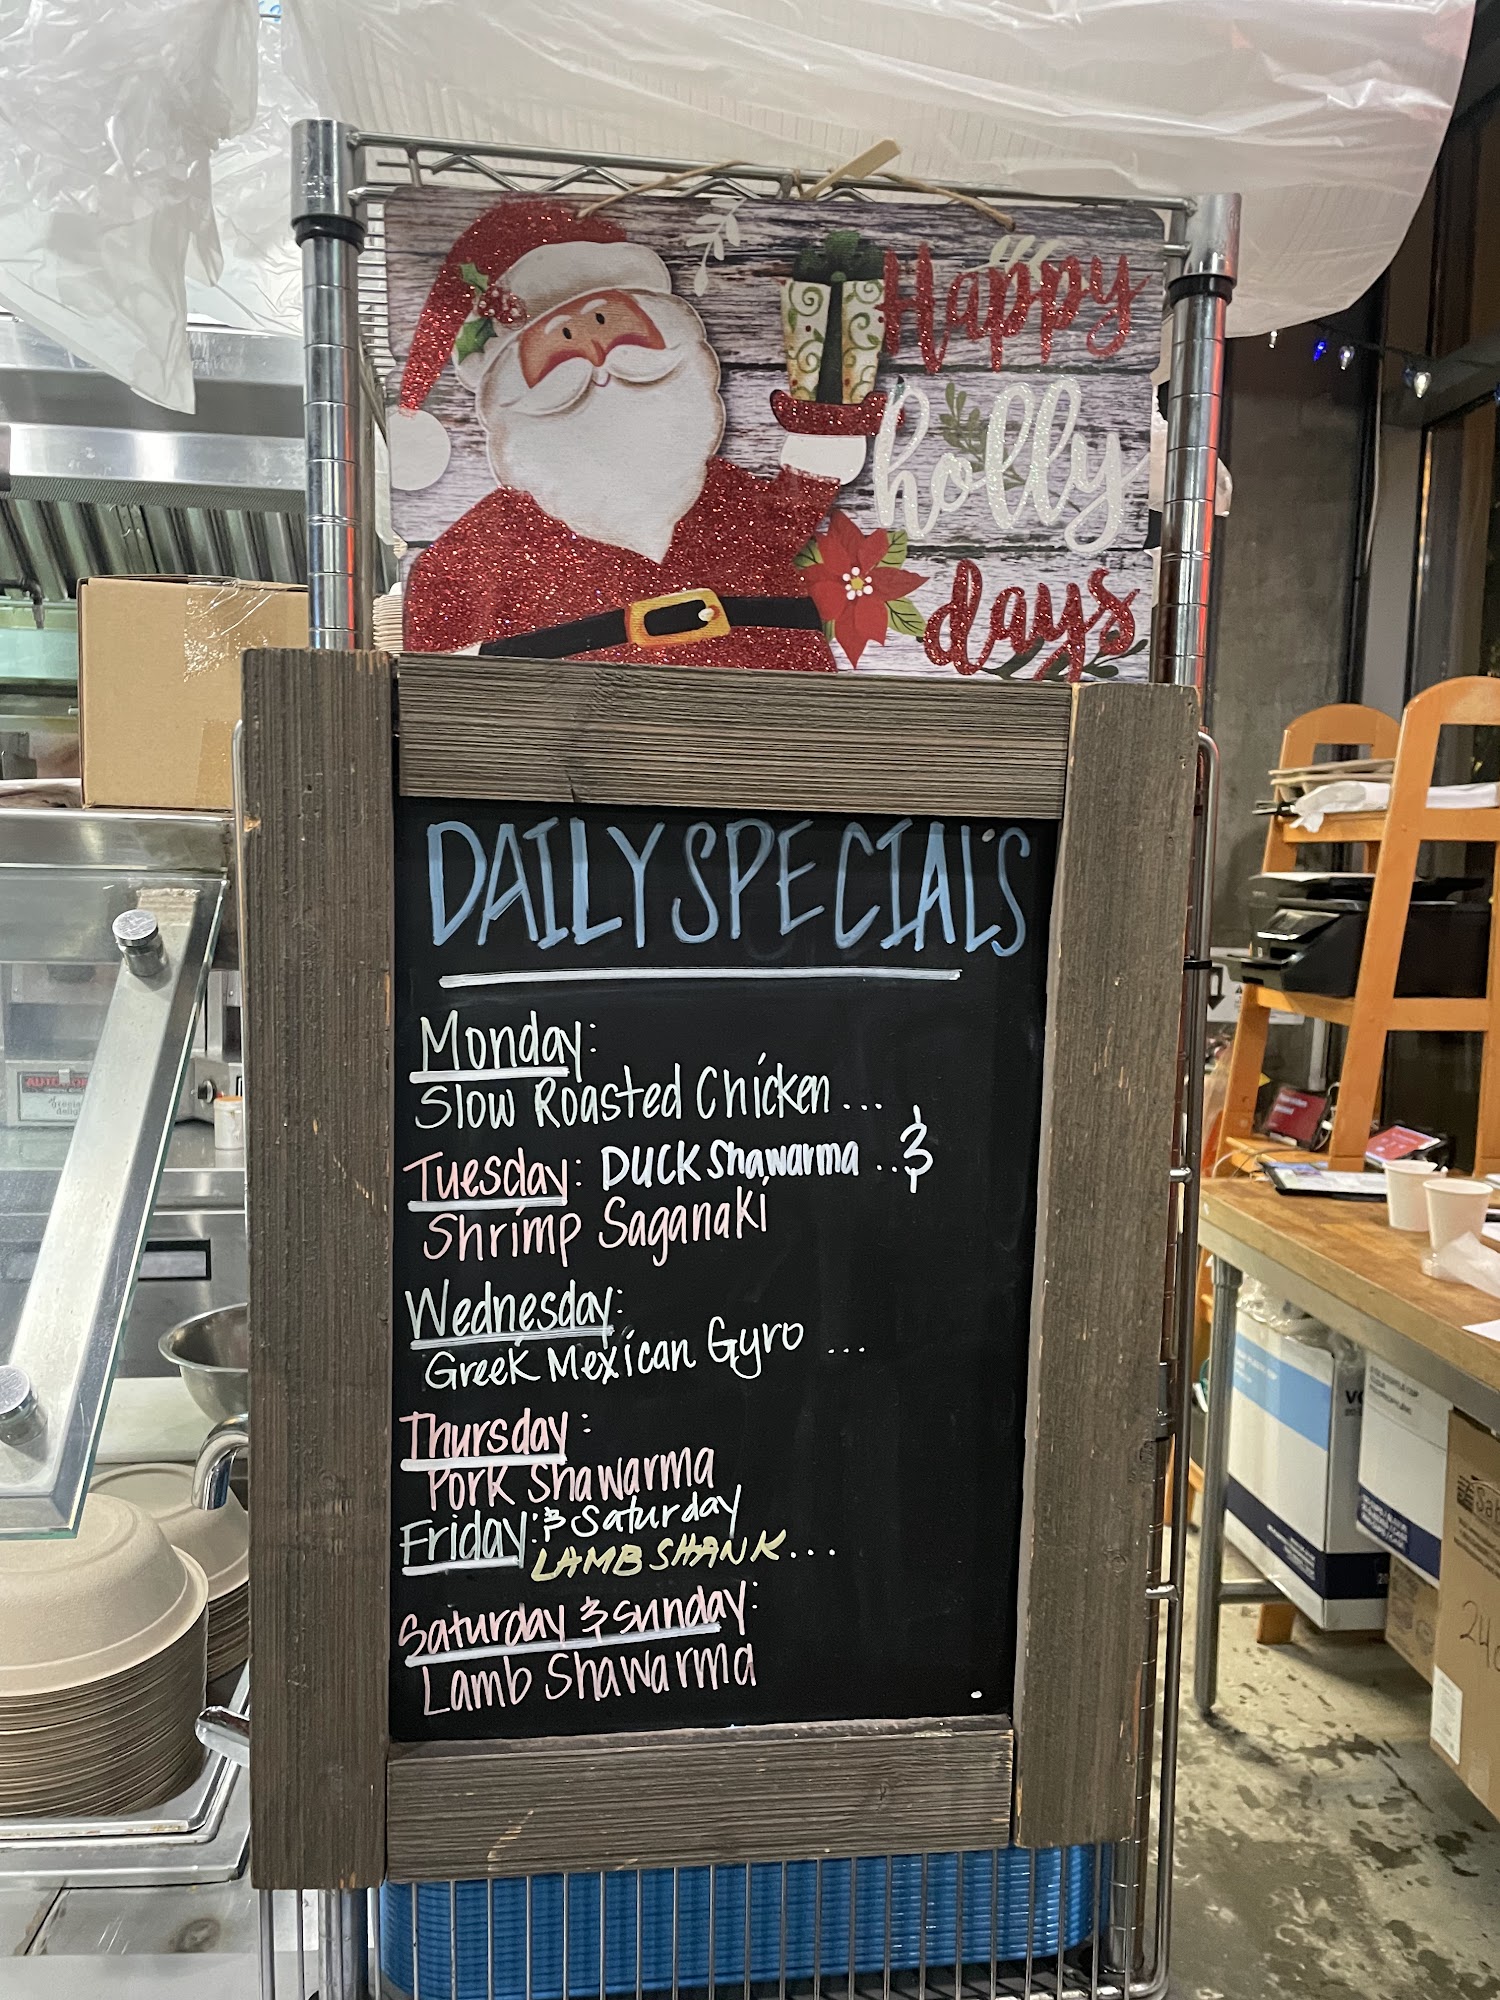 Happy
holly
days
DAILY SPECIAL'S
Monday:
Slow Roasted Chicken ...
Tuesday: DUCK Shawarma .. &
Shrimp Saganaki
Wednesday:
Greek Mexican Gyro ...
Thursday:
Pork Shawarma
Friday: & Saturday
LAMB SHANK...
Saturday & Sunday:
Lamb Shawarma